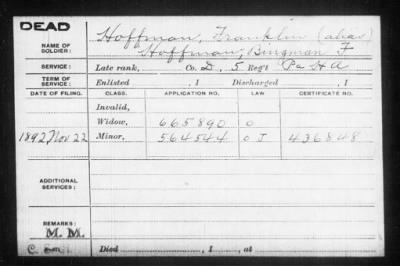 DEAD
Hoffman, Franklin (alias)
NAME OF SOLDIER:
Hoffman, Bingman F
SERVICE: Late rank, Co. D, 5 Reg't Pa H A
TERM OF SERVICE: Enlisted , 1 Discharged , 1
DATE OF FILING. CLASS. APPLICATION NO. LAW CERTIFICATE NO.
Invalid,
Widow, 665890 O
1892 Nov 22 Minor, 564544 O J 436848
ADDITIONAL SERVICES:
REMARKS:
M. M.
C.
Died , 1 , at